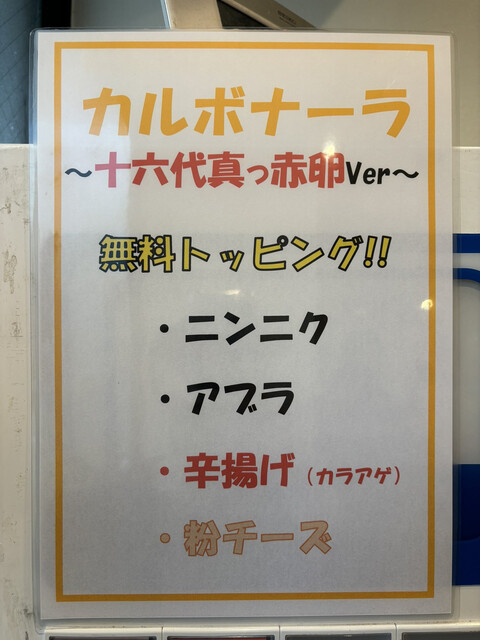 カルボナーラ
～十六代真っ赤卵Ver～
無料トッピング!!
・ニンニク
・アブラ
・辛揚げ（カラアゲ）
・粉チーズ